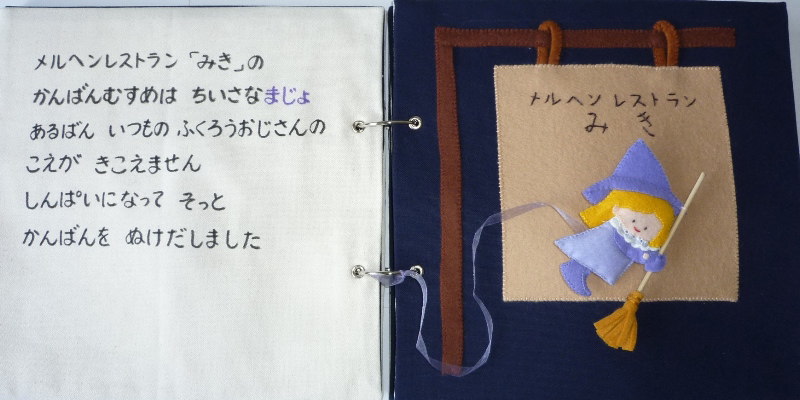 メルヘンレストラン「みき」の
かんばんむすめは ちいさなまじょ
あるばん いつもの ふくろうおじさんの
こえが きこえません
しんぱいになって そっと
かんばんを ぬけだしました
メルヘン レストラン
みき